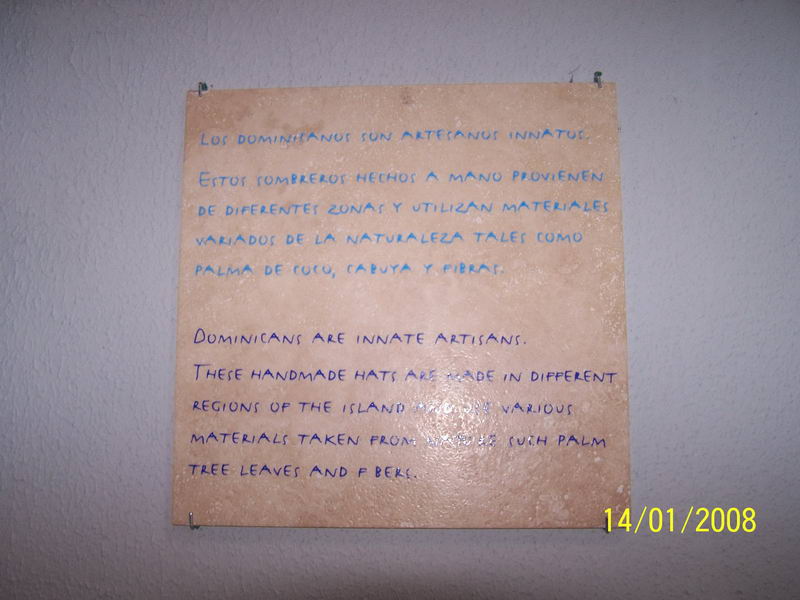 LOS DOMINICANOS SON ARTESANOS INNATOS.
ESTOS SOMBREROS HECHOS A MANO PROVIENEN
DE DIFERENTES ZONAS Y UTILIZAN MATERIALES
VARIADOS DE LA NATURALEZA TALES COMO
PALMA DE COCO, CABUYA Y FIBRAS.
DOMINICANS ARE INNATE ARTISANS.
THESE HANDMADE HATS ARE MADE IN DIFFERENT
REGIONS OF THE ISLAND AND USE VARIOUS
MATERIALS TAKEN FROM NATURE SUCH PALM
TREE LEAVES AND FIBERS.
14/01/2008